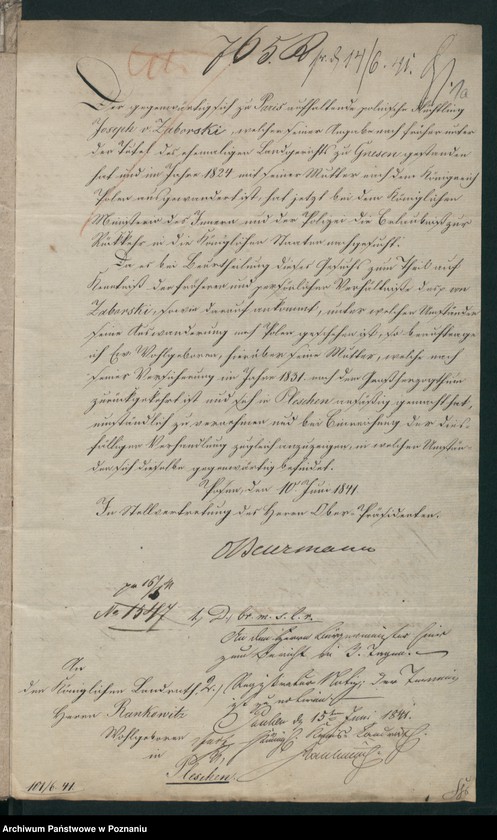 765 B
pr. d. 14/6. 41.
Der gegenwärtig sich zu Paris aufhaltende polnische Flüchtling
Joseph v. Zaborski, welcher seiner Angabe nach früher unter
der Tutel des ehemaligen Landgerichts zu Gnesen gestanden
hat und im Jahre 1824 mit seiner Mutter nach dem Königreich
Polen ausgewandert ist, hat jetzt bei dem Königlichen
Ministerio des Innern und der Polizei die Erlaubniß zur
Rückkehr in die Königlichen Staaten nachgesucht.
Da es bei Beurtheilung dieses Gesuchs zum Theil auf
Kenntniß der früheren und persönlichen Verhältnisse des p von
Zaborski, sowie darauf ankommt, unter welchen Umständen
seine Auswanderung nach Polen geschehen ist, so beauftrage
ich Ew Wohlgeboren, hierüber seine Mutter, welche nach
seiner Versicherung im Jahre 1831 nach dem Großherzogthum
zurückgekehrt ist und sich in Pleschen ansäßig gemacht hat,
umständlich zu vernehmen und bei Einreichung der dies-
fälligen Verhandlung zugleich anzuzeigen, in welchen Umstän-
den sich dieselbe gegenwärtig befindet.
Posen, den 10. Juni 1841.
In Stellvertretung des Herrn Ober-Präsidenten.
Beurmann
No 1547
1, D. br. m. s. l. r.
An den Herrn Bürgermeister hier
zum Bericht in 3 Tagen.
An
den Königlichen Landrath
Herrn Rankowitz
Wohlgeboren
in
Pleschen
2,
den 15ten Juni 1841.
101/6. 41.
Archiwum Państwowe w Poznaniu